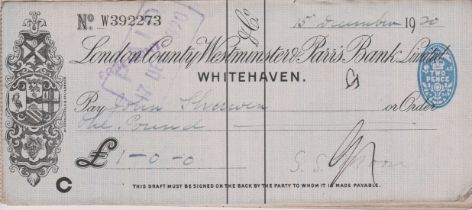 No. W392273
15 December 1920
London County Westminster & Parr's Bank Limited
WHITEHAVEN.
TWO PENCE
Pay John Sherwen or Order
One Pound
£ 1-0-0
C
THIS DRAFT MUST BE SIGNED ON THE BACK BY THE PARTY TO WHOM IT IS MADE PAYABLE.